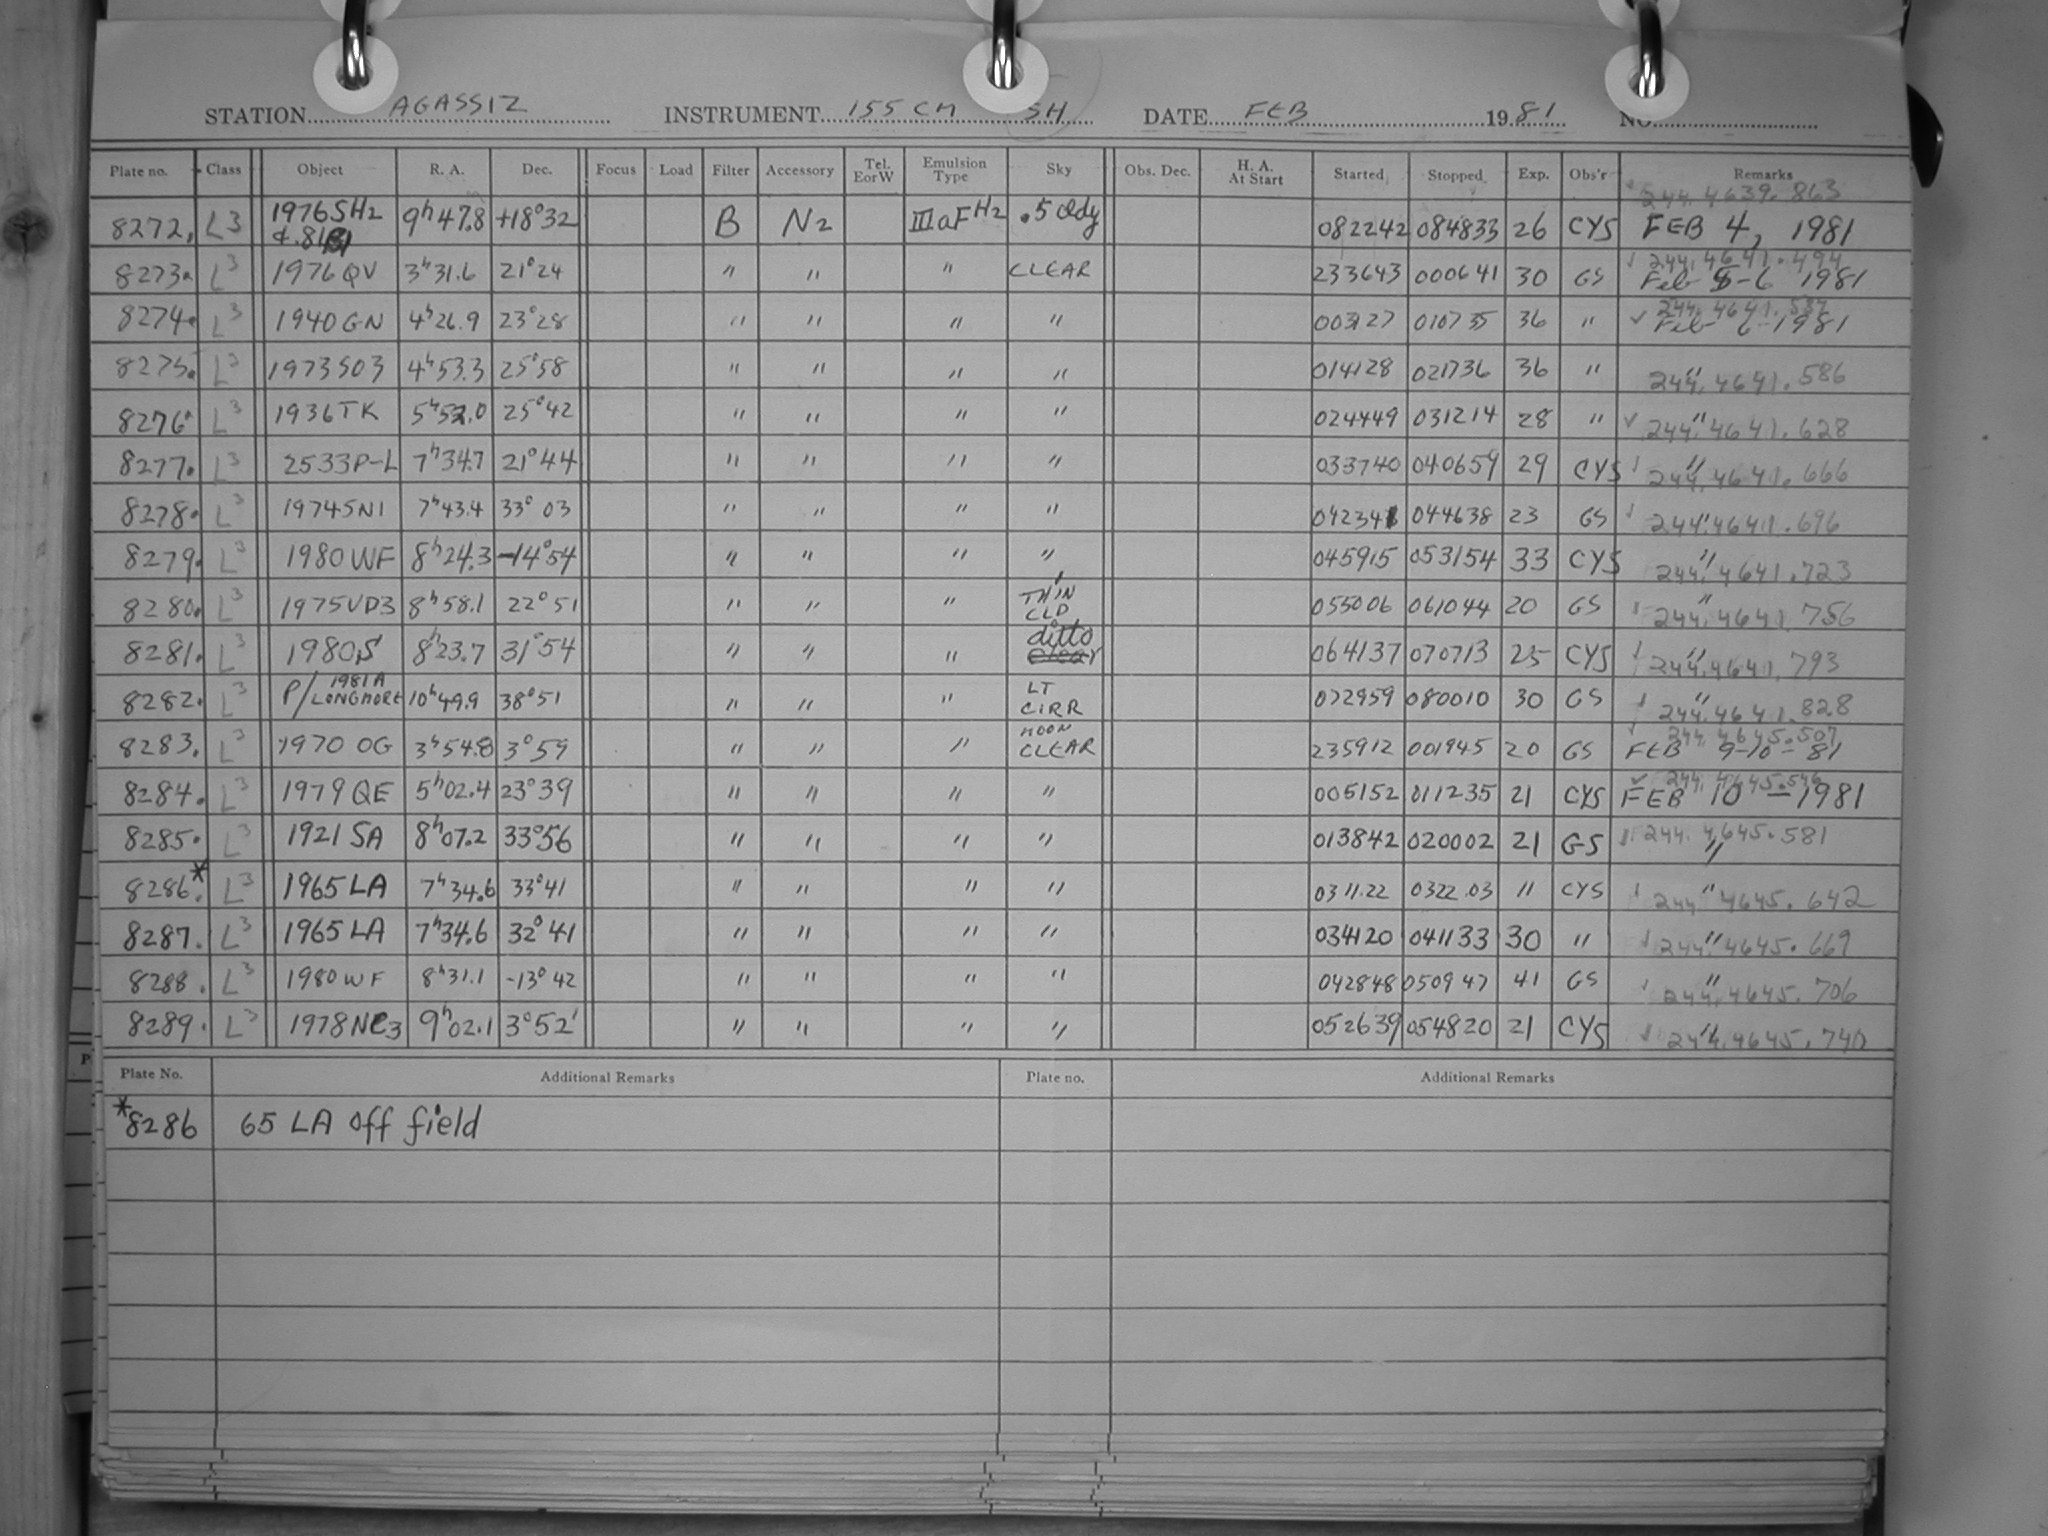 STATION AGASSIZ INSTRUMENT 155 CM SH DATE FEB 1981 NO.
Plate no. Class Object R. A. Dec. Focus Load Filter Accessory Tel. EorW Emulsion Type Sky Obs. Dec. H. A. At Start Started Stopped Exp. Obs'r Remarks
244.4639.863
8272. L3 1976SH2 9h47.8 +18°32 B N2 IIIaF H2 .5 cldy 082242 084833 26 CYS FEB 4, 1981
244.4641.494
8273. L3 1976QV 3h31.6 21°24 " " " CLEAR 233643 000641 30 GS Feb 5-6 1981
8274. L3 1940GN 4h26.9 23°28 " " " " 003127 010735 36 " Feb 6 1981
8275. L3 1973SO3 4h53.3 25°58 " " " " 014128 021736 36 " " 244.4641.586
8276. L3 1936TK 5h52.0 25°42 " " " " 024449 031214 28 " " 244.4641.628
8277. L3 2533P-L 7h34.7 21°44 " " " " 033740 040659 29 CYS " 244.4641.666
8278. L3 1974SN1 7h43.4 33°03 " " " " 042341 044638 23 GS " 244.4641.696
8279. L3 1980WF 8h24.3 -14°54 " " " " 045915 053154 33 CYS " 244.4641.723
8280. L3 1975VD3 8h58.1 22°51 " " " THIN CLD 055006 061044 20 GS " 244.4641.756
8281. L3 1980S 8h23.7 31°54 " " " ditto 064137 070713 25 CYS " 244.4641.793
8282. L3 P/LONGMORE 1981A 10h49.9 38°51 " " " LT CIRR 072959 080010 30 GS " 244.4641.828
244.4645.507
8283. L3 1970 OG 3h54.8 3°59 " " " MOON CLEAR 235912 001945 20 GS FEB 9-10-81
244.4645.546
8284. L3 1979QE 5h02.4 23°39 " " " " 005152 011235 21 CYS FEB 10-1981
8285. L3 1921 SA 8h07.2 33°56 " " " " 013842 020002 21 GS 244.4645.581 "
8286.* L3 1965LA 7h34.6 33°41 " " " " 0311.22 0322.03 11 CYS " 244 4645.642
8287. L3 1965 LA 7h34.6 32°41 " " " " 034120 041133 30 " " 244.4645.669
8288. L3 1980WF 8h31.1 -13°42 " " " " 042848 050947 41 GS " 244.4645.706
8289. L3 1978NC3 9h02.1 3°52' " " " " 052639 054820 21 CYS " 244.4645.740
Plate No. Additional Remarks Plate no. Additional Remarks
*8286 65 LA off field